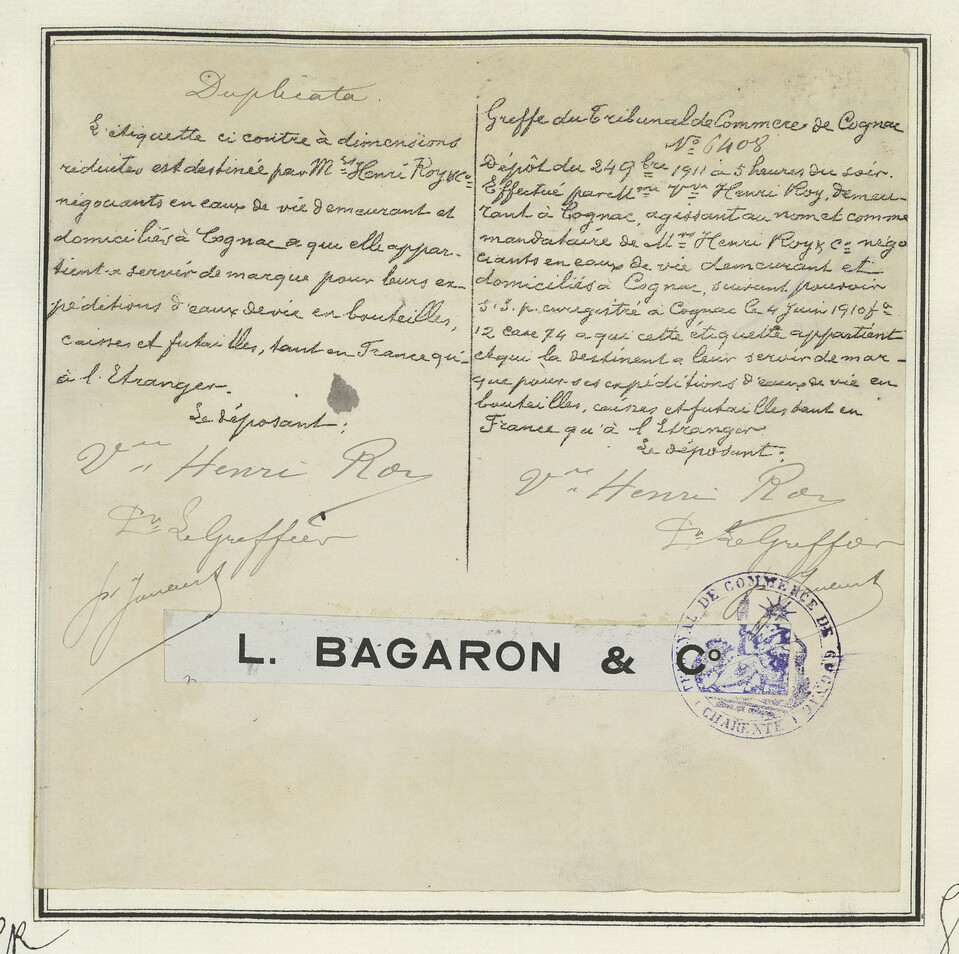 Duplicata.
L'étiquette ci contre à dimensions
réduites est destinée par M^rs Henri Roy & C^o
négociants en eaux de vie demeurant et
domiciliés à Cognac a que elle appar-
tient a servir de marque pour leurs ex-
péditions d'eaux de vie en bouteilles,
caisses et futailles, tant en France qu'
à l'Etranger.
Le déposant:
V^ve Henri Roy
P^r Le Greffier
Greffe du Tribunal de Commerce de Cognac
N^o 6408
Dépôt du 24 9^bre 1911 à 5 heures du soir.
Effectué par M^me V^ve Henri Roy, demeu-
rant à Cognac, agissant au nom et comme
mandataire de M^rs Henri Roy & C^o négo
ciants en eaux de vie demeurant et
domiciliés à Cognac, suivant pouvoir
S.S.p. enregistré à Cognac le 4 Juin 1910 f^o
12 case 74 a qui cette etiquette appartient
et qui la destinent a leur servir de mar-
que pour ses expéditions d'eaux de vie en
bouteilles, caisses et futailles tant en
France qu'à l'Etranger
Le déposant:
V^ve Henri Roy
P^r Le Greffier
L. BAGARON & C^o
TRIBUNAL DE COMMERCE DE COGNAC
(CHARENTE)